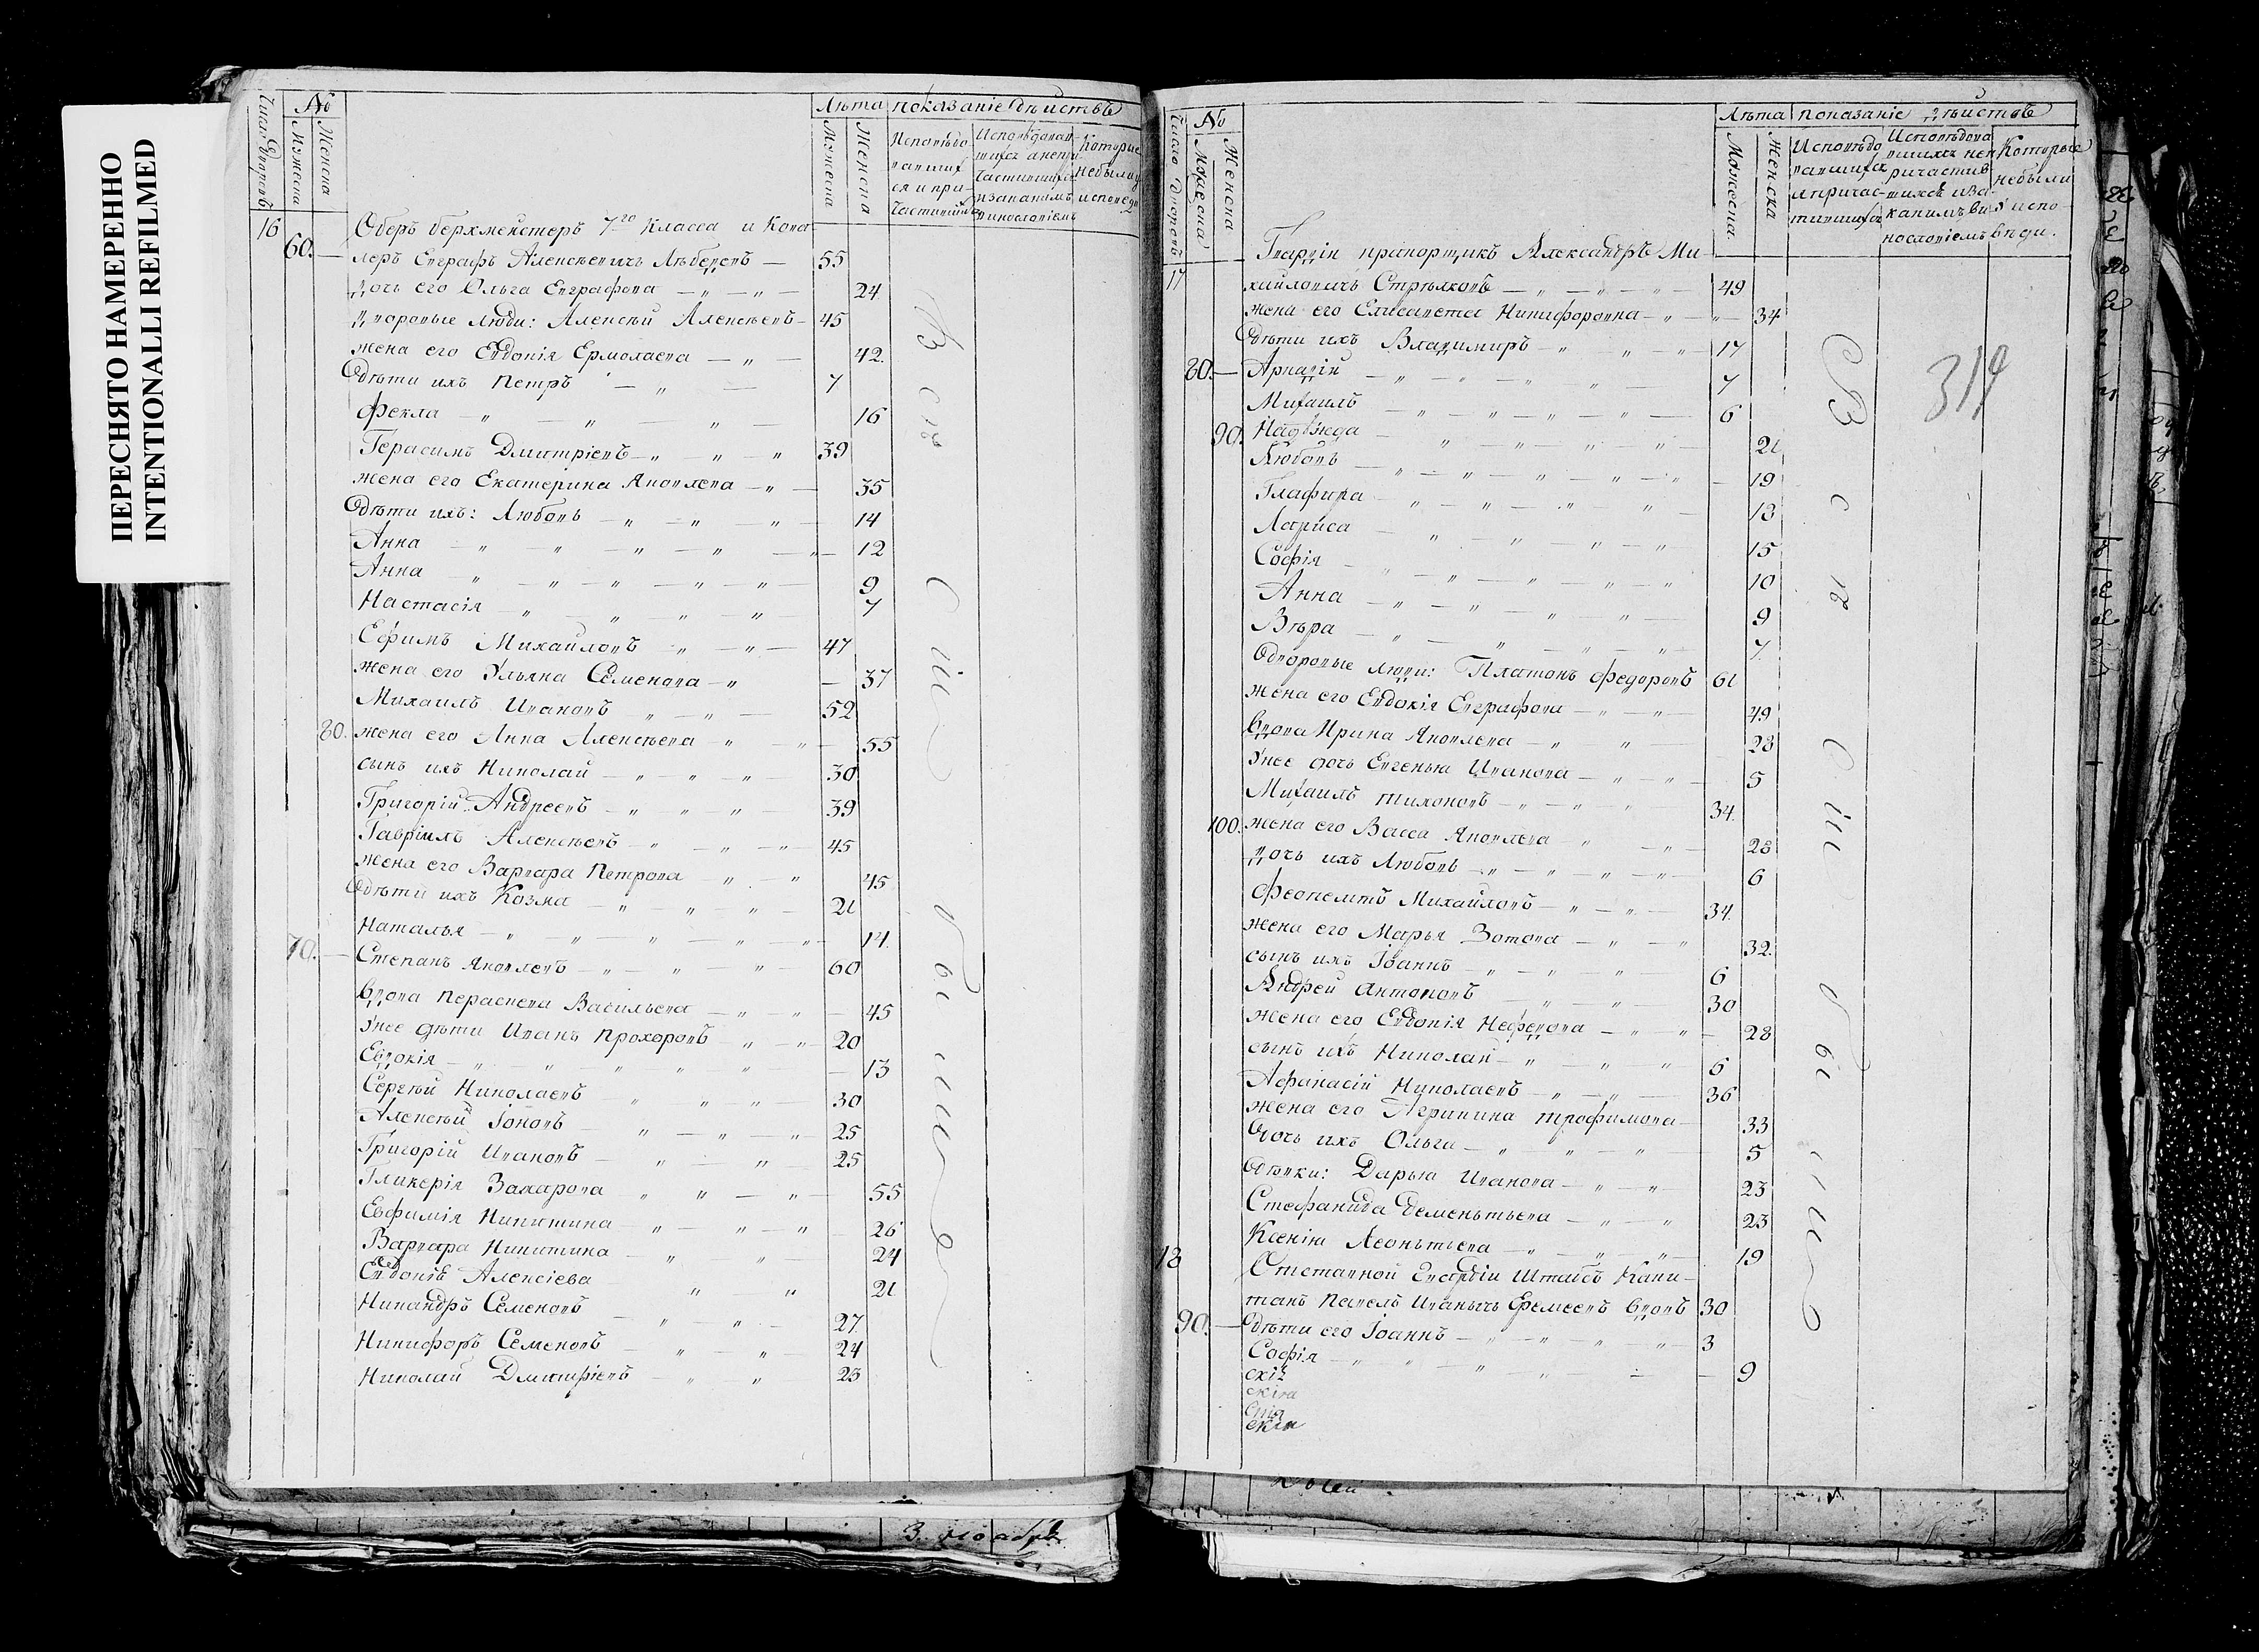 ПЕРЕСНЯТО НАМЕРЕННО
INTENTIONALLI REFILMED
Число дворовъ
№
Мужеска
Женска
Лѣта
показаніе дѣиствъ
Мужеска
Женска
16
Оберъ берхмейстеръ 7го класса и Кава
60. леръ Евграфъ Алексѣевичъ Лѣбедевъ 55
дочь его Ольга Евграфова 24
дворовые люди: Алексѣй Алексѣевъ 45
жена его Евдокія Ермолаева 42.
дѣти ихъ Петръ 7
Фекла 16
Герасимъ Дмитріевъ 39
жена его Екатерина Яковлева 35
дѣти ихъ: Любовь 14
Анна 12
Анна 9
Настасія 7
Ефимъ Михайловъ 47
жена его Ульяна Семенова 37
Михаилъ Ивановъ 52
80. жена его Анна Алексѣева 55
сынъ ихъ Николай 30
Григорій Андреевъ 39
Гавріилъ Алексѣевъ 45
жена его Варвара Петрова 45
дѣти ихъ Козма 21
Наталья 14.
70. Степанъ Яковлевъ 60
вдова Пераскева Васильева 45
у нее дѣти Иванъ Прохоровъ 20
Евдокія 13
Сергѣй Николаевъ 30
Алексѣй Іоновъ 25
Григорій Ивановъ 25
Гликерія Захарова 55
Евфимія Никитина 26
Варвара Никитина 24
Евдокія Алексіева 21
Никандръ Семеновъ 27
Никифоръ Семеновъ 24
Николай Дмитріевъ 23
Всѣ сіи были
3. Ноабрь
Число дворовъ
№
Мужеска
Женска
Лѣта
показаніе дѣиствъ
Можеска
Женска
Которые небыли у испо-вѣди.
Гвардіи прапорщикъ Александръ Ми-
17 хайловичъ Стрѣлковъ 49
жена его Елисавета Никифоровна 34
дѣти ихъ Владимиръ 17
80. Аркадій 7
Михаилъ 6
90. Надѣжда 21
Любовь 19
Глафира 18
Лариса 15
Софія 10
Анна 9
Вѣра 7.
дворовые люди: Платонъ Федоровъ 61
жена его Евдокія Евграфова 49
вдова Ирина Яковлева 28
у нее дочь Евгенья Иванова 5
Михаилъ Тихоновъ 34.
100. жена его Васса Яковлева 28
дочь ихъ Любовь 6
Феопемтъ Михайловъ 34.
жена его Марья Зотова 32.
сынъ ихъ Іоаннъ 6
Андрей Антоновъ 30
жена его Евдокія Нефедова 28
сынъ ихъ Николай 6
Афанасій Николаевъ 36
жена его Агрипина Трофимова 33
дочь ихъ Ольга 5
дѣвки: Дарья Иванова 23
Стефанида Дементьева 23
Ксенія Леонтьева 19
18 Отставной Гвардіи Штабсъ Капи-
танъ Павелъ Иванычъ Еремеевъ вдовъ 30
90. дѣти его Іоаннъ 3
Софія 9
Всѣ сіи были
319